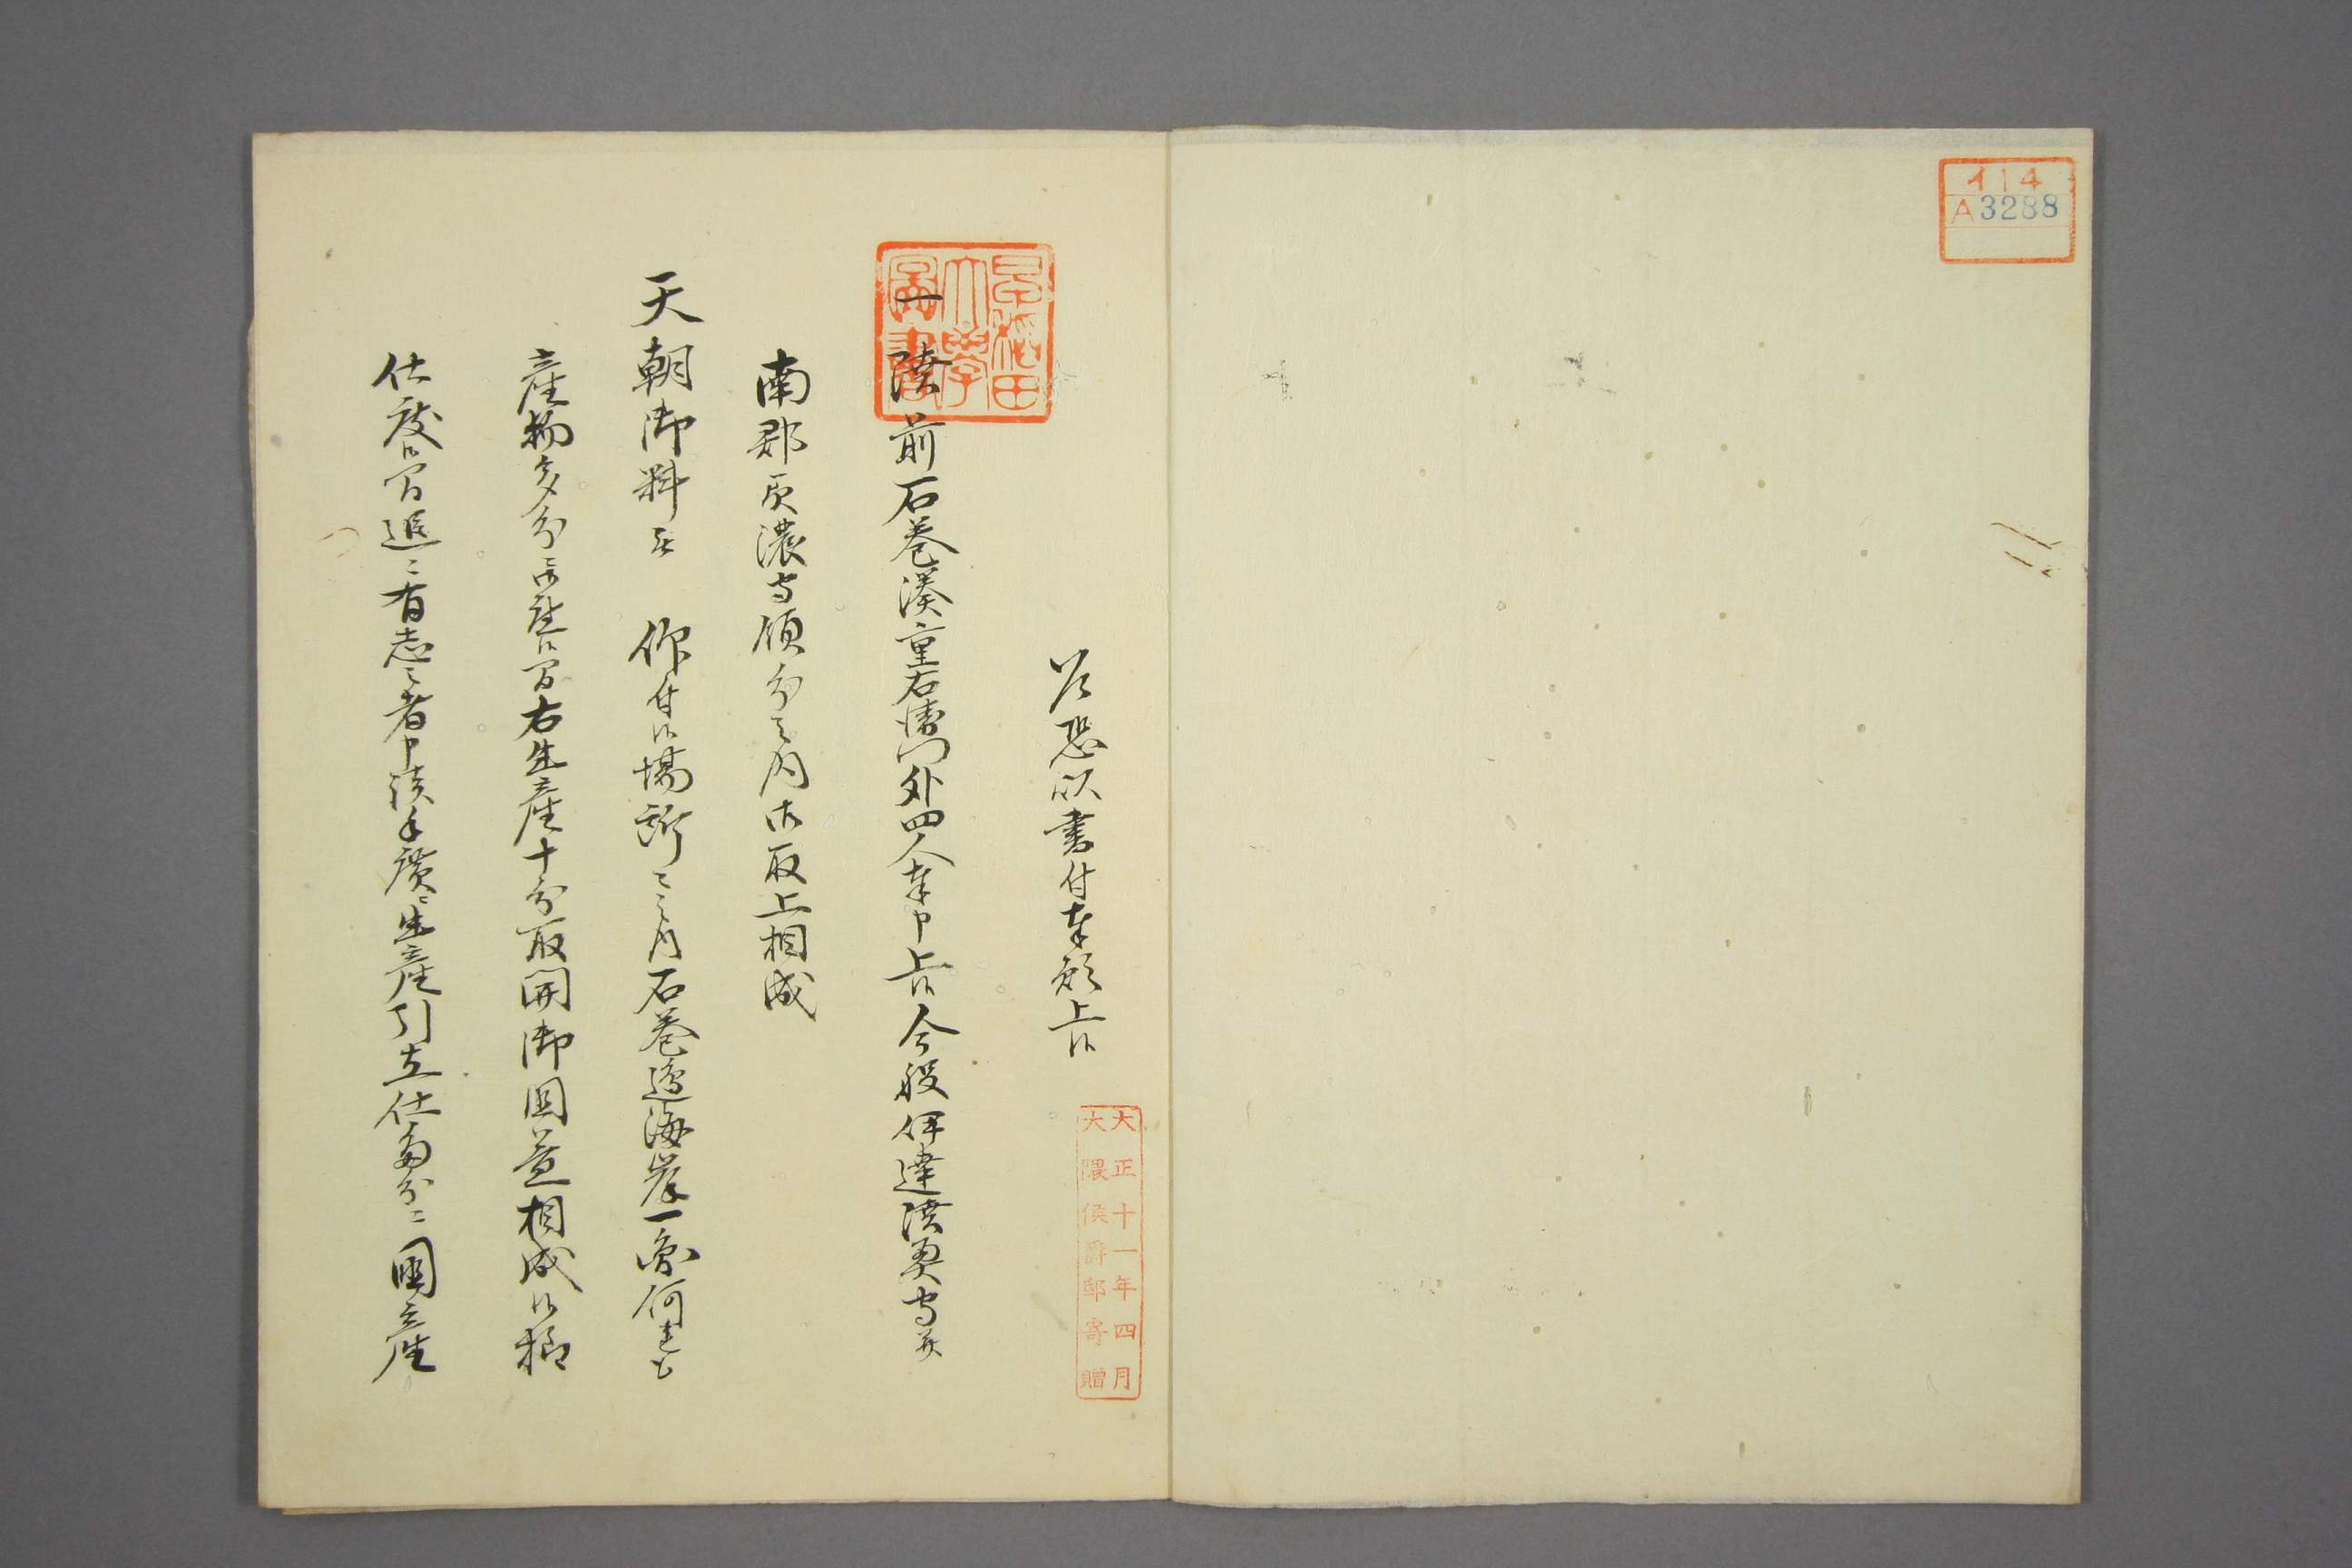 イ14
A3288
乍恐以書付奉願上候
大正十一年四月
大隈侯爵邸寄贈
早稲田大学図書
一陸前石巻湊重右衛門外四人奉申上候今般伊達陸奥守并
南部美濃守領分之内御取上相成
天朝御料ニ 仰付候場所之内石巻邊海岸一圓何連も
産物多分ニ御座候間右生産十分取開御国益相成候様
仕度候間追々有志之者申談手廣ニ生産引立仕多分ニ國産